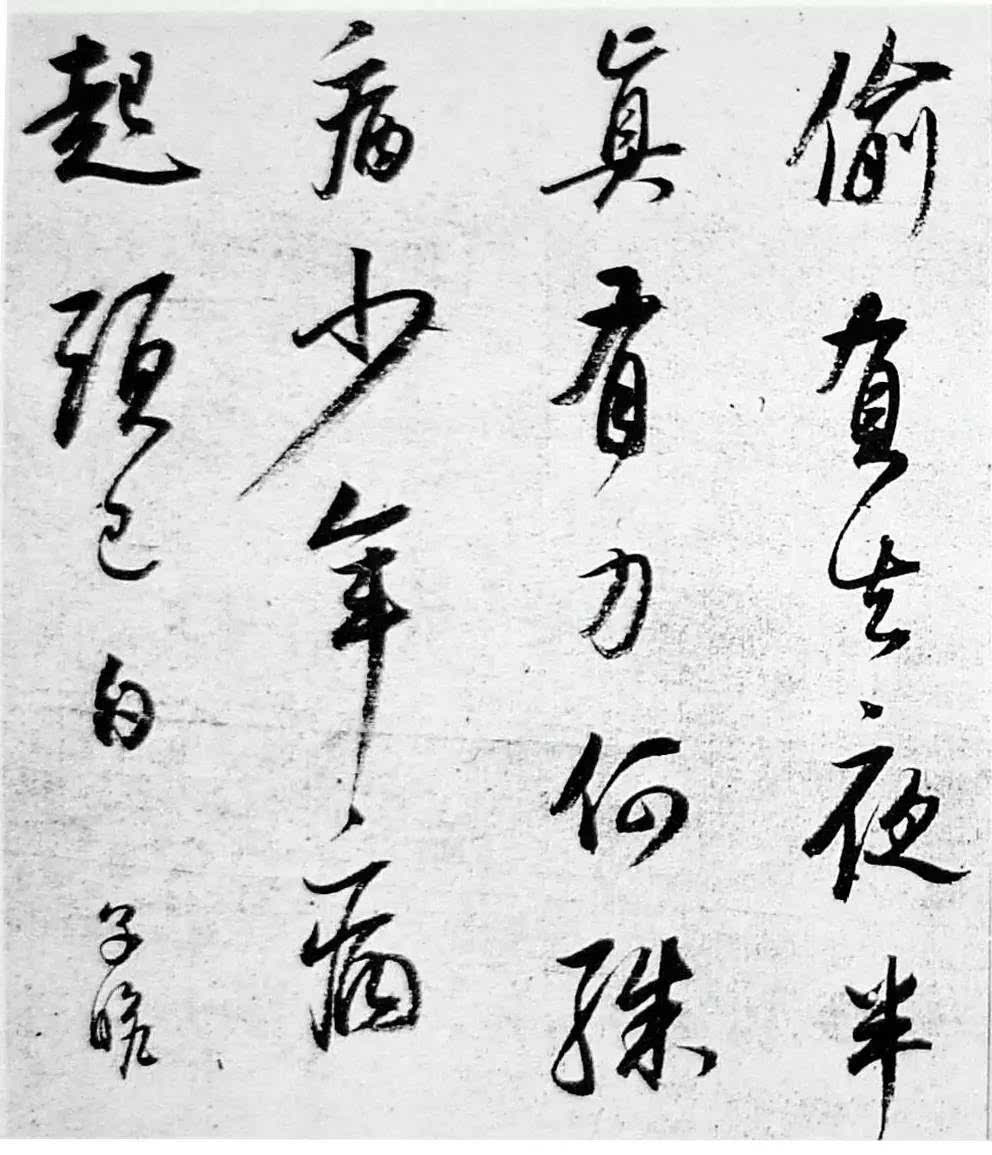 偷負去夜半
真有力何殊
病少年病
起頭已白
子瞻